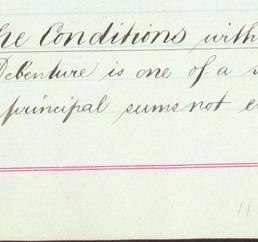 he Conditions with
Debenture is one of a s
principal sums not e